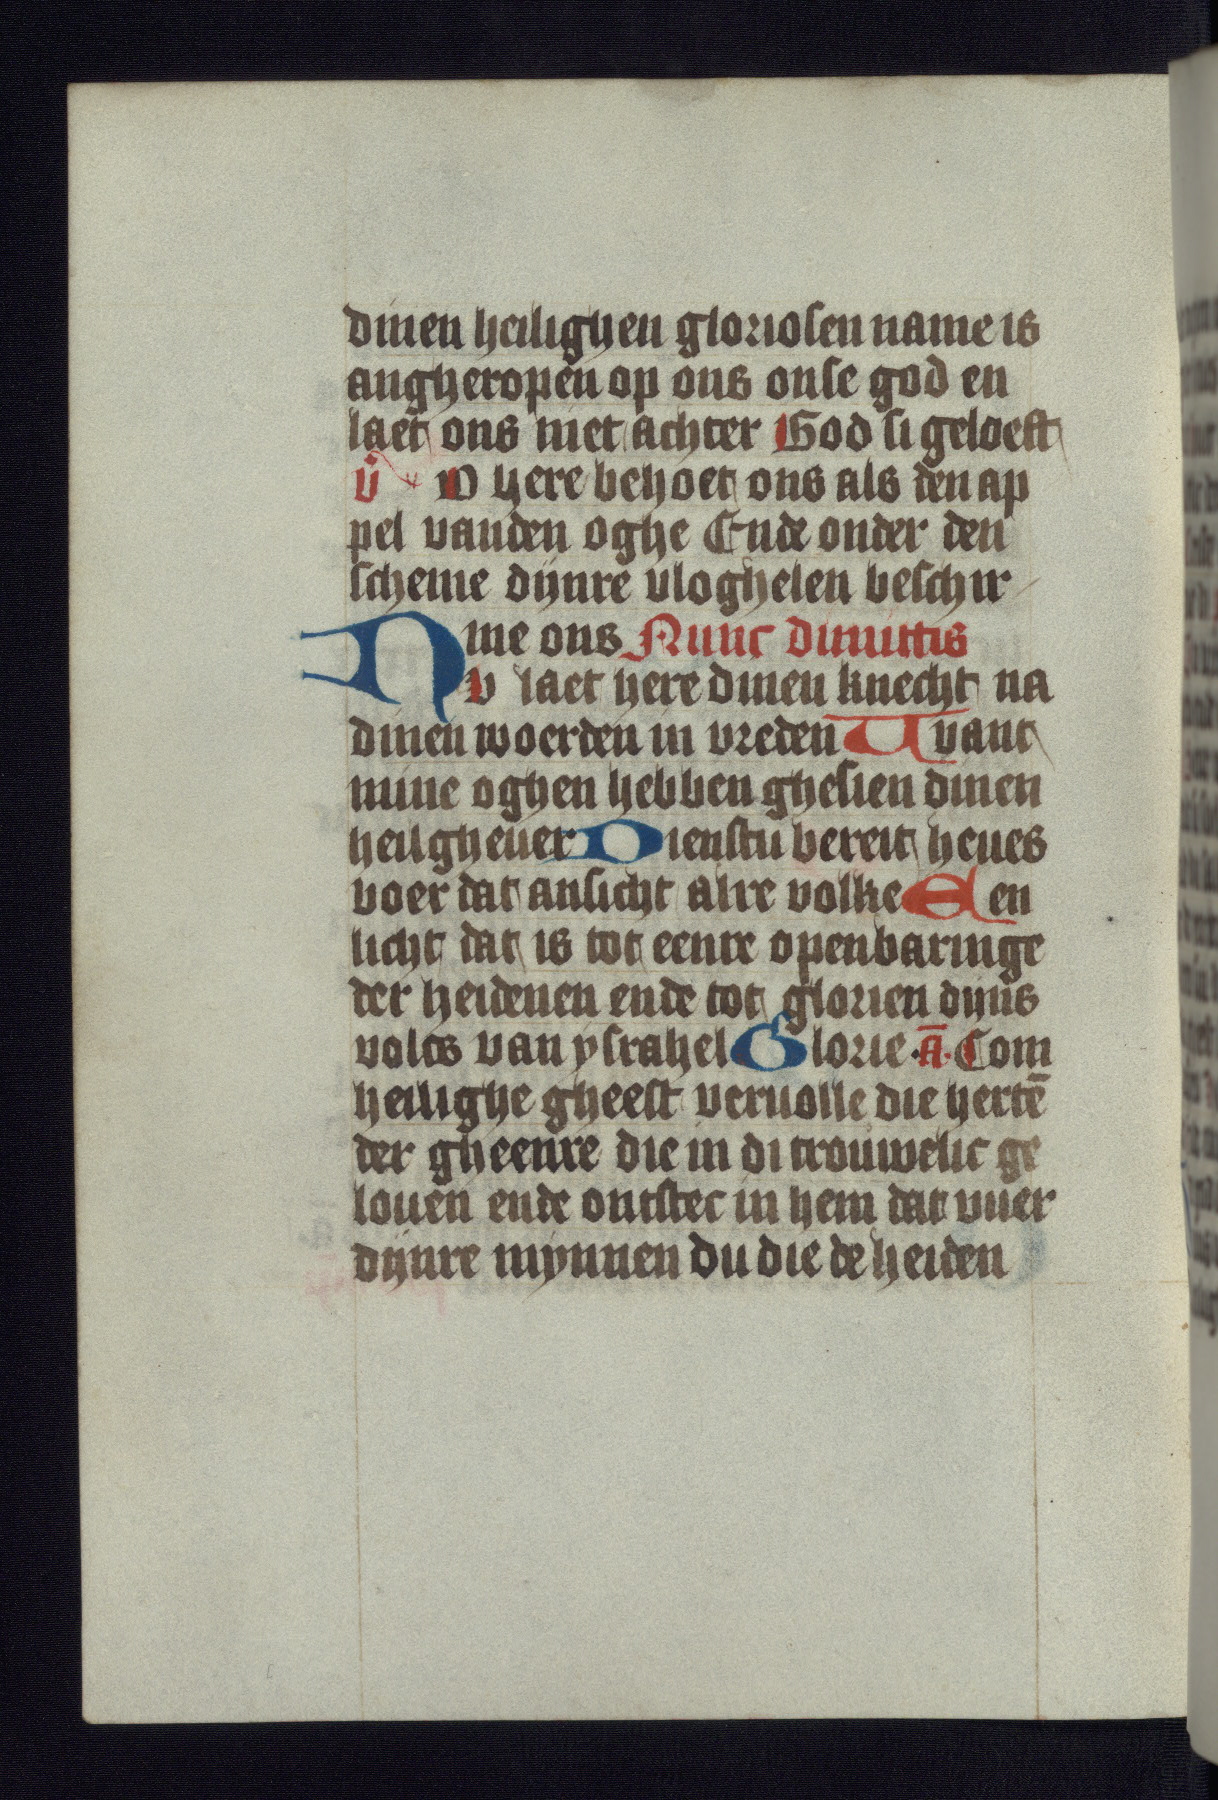 dinen heilighen gloriosen name is
angheropen op ons onse god en
laet ons niet achter God si geloeft
v̓ O here behoet ons als den ap
pel vanden oghe Ende onder den
scheme dijnre vloghelen beschir
me ons Nunc dimittis
Nv laet here dinen knecht na
dinen woerden in vreden Want
mine oghen hebben ghesien dinen
heilgheuer Dienstu bereit heues
voer dat ansicht alre volke Een
licht dat is tot eenre openbaringe
der heidenen ende tot glorien dijns
volcs van ysrahel Glorie · A̅ · Com
heilighe gheest veruolle die hertē
der gheenre die in di trouwelic ge
louen ende ontstec in hem dat vuer
dijnre mynnen du die de heiden